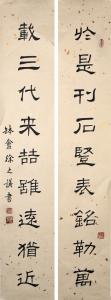 扵是刊石竪表銘勒萬
載三代来喆雖遠猶近
盦徐之謙書